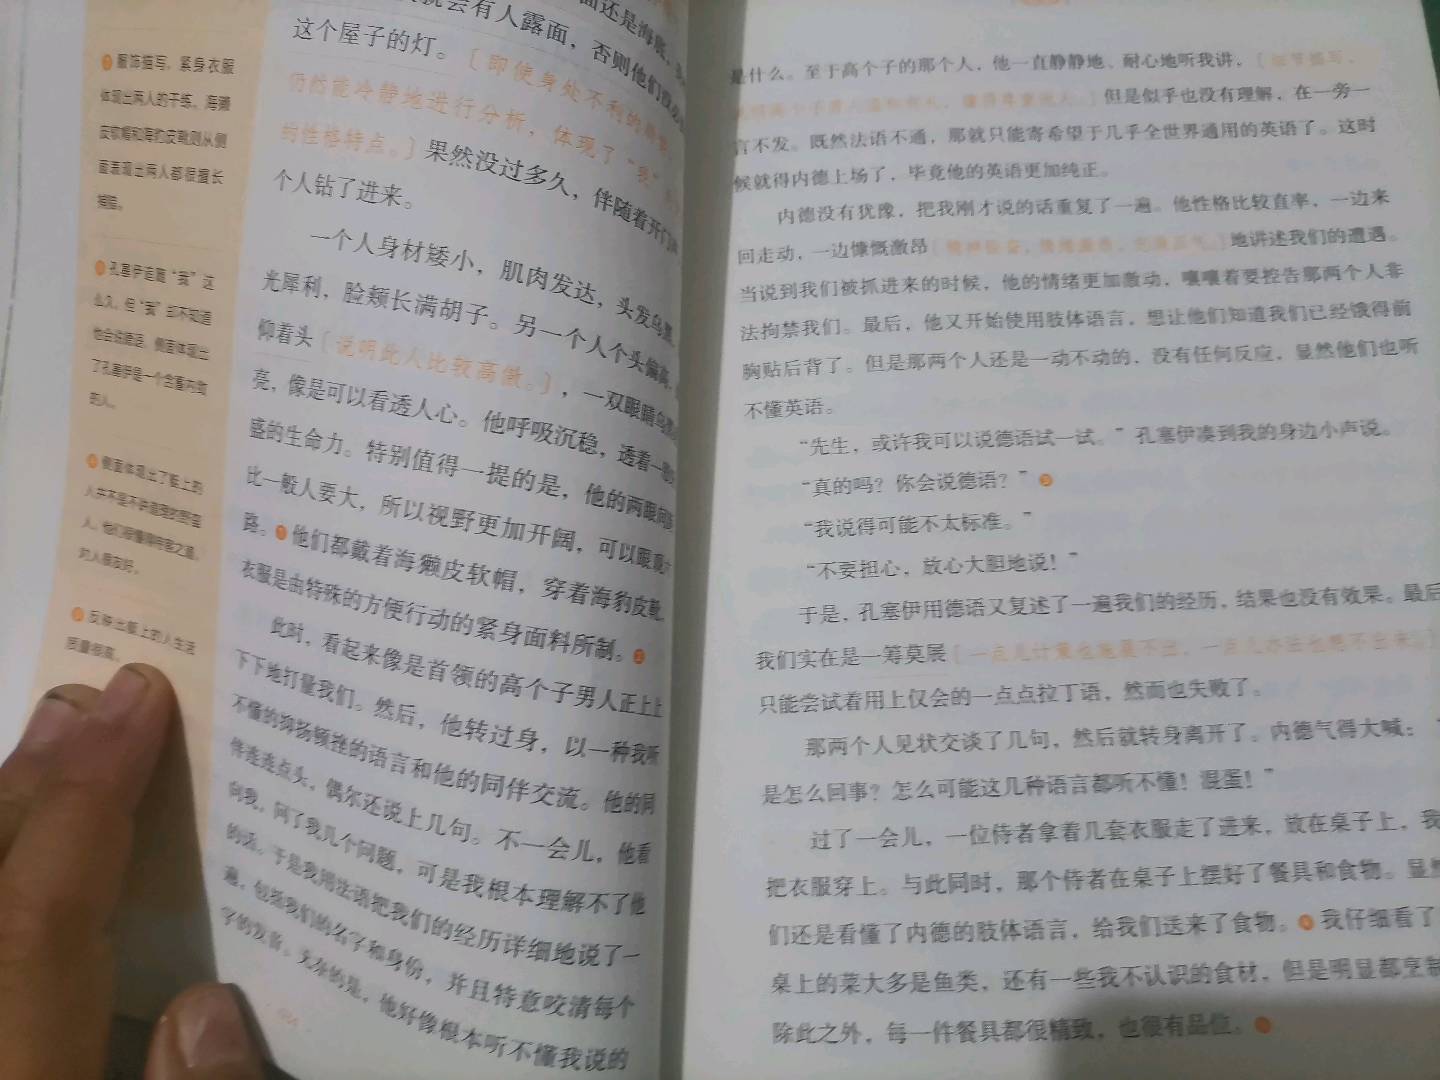 服饰描写，紧身衣服
体现出两人的干练，海獭
皮软帽和海豹皮靴则从侧
面表现出两人都很擅长
捕猎。
孔塞伊追随“我”这
么久，但“我”却不知道
他会说德语，侧面体现出
了孔塞伊是一个含蓄内敛
的人。
侧面体现出了艇上的
人并不是不讲道理的野蛮
人，他们很懂得待客之道，
对人很友好。
反映出艇上的人生活
质量很高。
会有人露面，否则他们没必
这个屋子的灯。［即使身处不利的
仍然能冷静地进行分析，体现了“我”
的性格特点。］果然没过多久，伴随着开门
个人钻了进来。
一个人身材矮小，肌肉发达，头发乌黑，
光犀利，脸颊长满胡子。另一个人个头偏高，
仰着头［说明此人比较高傲。］，一双眼睛乌黑
亮，像是可以看透人心。他呼吸沉稳，透着一股
盛的生命力。特别值得一提的是，他的两眼间
比一般人要大，所以视野更加开阔，可以眼观六
路。他们都戴着海獭皮软帽，穿着海豹皮靴，
衣服是由特殊的方便行动的紧身面料所制。
此时，看起来像是首领的高个子男人正上上
下下地打量我们。然后，他转过身，以一种我听
不懂的抑扬顿挫的语言和他的同伴交流。他的同
伴连连点头，偶尔还说上几句。不一会儿，他看
向我，问了我几个问题，可是我根本理解不了他
的话。于是我用法语把我们的经历详细地说了一
遍，包括我们的名字和身份，并且特意咬清每个
字的发音。无奈的是，他好像根本听不懂我说的
是什么。至于高个子的那个人，他一直静静地、耐心地听我讲，
但是似乎也没有理解，在一旁一
言不发。既然法语不通，那就只能寄希望于几乎全世界通用的英语了。这时
候就得内德上场了，毕竟他的英语更加纯正。
内德没有犹豫，把我刚才说的话重复了一遍。他性格比较直率，一边来
回走动，一边慷慨激昂地讲述我们的遭遇。
当说到我们被抓进来的时候，他的情绪更加激动，嚷嚷着要控告那两个人非
法拘禁我们。最后，他又开始使用肢体语言，想让他们知道我们已经饿得前
胸贴后背了。但是那两个人还是一动不动的，没有任何反应，显然他们也听
不懂英语。
“先生，或许我可以说德语试一试。”孔塞伊凑到我的身边小声说。
“真的吗？你会说德语？”
“我说得可能不太标准。”
“不要担心，放心大胆地说！”
于是，孔塞伊用德语又复述了一遍我们的经历，结果也没有效果。最后
我们实在是一筹莫展［一点儿计策也施展不出，一点儿办法也想不出来。］
只能尝试着用上仅会的一点点拉丁语，然而也失败了。
那两个人见状交谈了几句，然后就转身离开了。内德气得大喊：“
是怎么回事？怎么可能这几种语言都听不懂！混蛋！”
过了一会儿，一位侍者拿着几套衣服走了进来，放在桌子上，我
把衣服穿上。与此同时，那个侍者在桌子上摆好了餐具和食物。显然
们还是看懂了内德的肢体语言，给我们送来了食物。我仔细看了
桌上的菜大多是鱼类，还有一些我不认识的食材，但是明显都烹制
除此之外，每一件餐具都很精致，也很有品位。